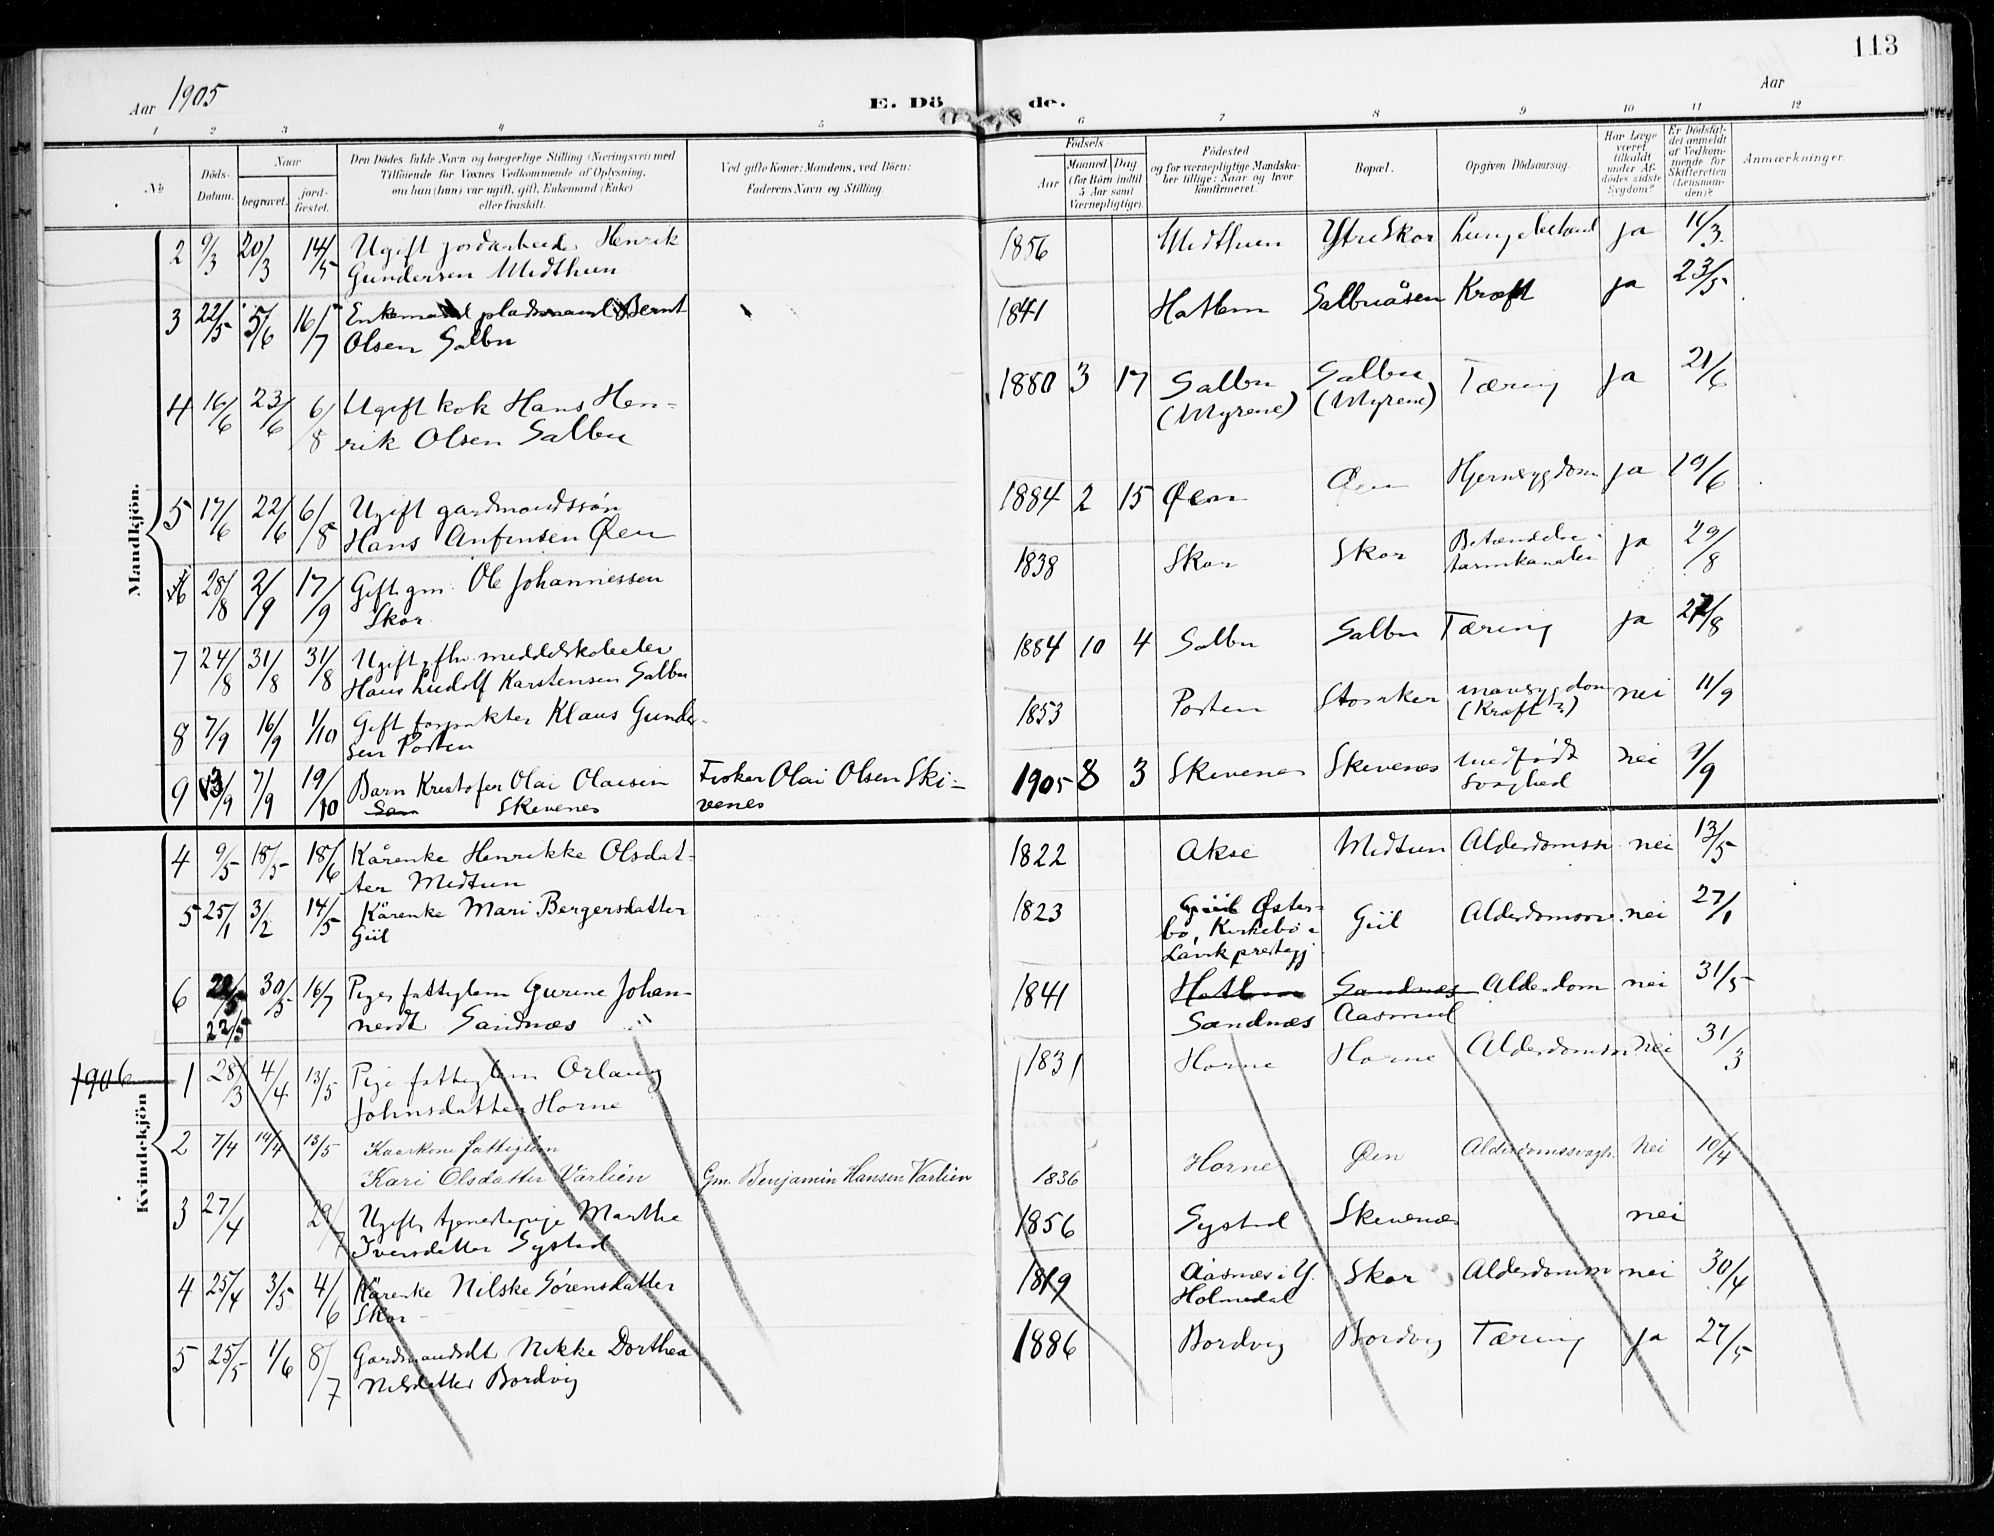 113
Aar 1905
E. Dö de.
Aar
1 2 3 4 5 6 7 8 9 10 11 12
No
Döds-Datum.
Naar
begravet.
jord-fæstet.
Den Dödes fulde Navn og borgerlige Stilling (Næringsvei) med
Tilföiende for Voxnes Vedkommende af Oplysning,
om han (hun) var ugift, gift, Enkemand (Enke)
eller fraskilt.
Ved gifte Koner: Mandens, ved Börn:
Faderens Navn og Stilling.
Födsels-
Aar
Maaned Dag
(for Börn indtil
5 Aar samt
Værnepligtige)
Födested
og for værnepligtige Mandska-
ber tillige: Naar og hvor
konfirmeret.
Bopæl.
Opgiven Dödsaarsag.
Har Læge
været
tilkaldt
under Af-
dödes sidste
Sygdom?
Er Dödsfal-
det anmeldt
af Vedkom-
mende for
Skifteretten
(Lensman-
den)?
Anmærkninger.
Mandkjön.
2 9/3 20/3 14/5 Ugift jordarbeider Henrik 1856 Midthun Ytre Skor ja 11/3
Gundersen Midthun
3 22/5 5/6 16/7 Enkemand pladsmand Bernt 1841 Hatlem Salbuåsen Kræft ja 23/5
Olsen Salbu
4 16/6 23/6 6/8 Ugift kok Hans Hen- 1880 3 17 Salbu Salbu Tæring ja 21/6
rik Olsen Salbu (Myrene) (Myrene)
5 17/6 22/6 6/8 Ugift gardmandssøn 1884 2 15 Øen Øen Hjernesygdom ja 19/6
Hans Anfinsen Øen
6 28/8 2/9 17/9 Gift gm. Ole Johannessen 1838 Skor Skor Betændelse i ja 29/8
Skor tarmkanalen
7 24/8 31/8 31/8 Ugift, fhv. middelskoleelev 1884 10 4 Salbu Salbu Tæring ja 27/8
Hans Ludolf Karstensen Salbu
8 7/9 16/9 1/10 Gift forpakter Klaus Gunder- 1853 Posten Storaker mavesygdom nei 11/9
sen Posten (Kræft?)
9 3/9 7/9 19/10 Barn Kristofer Olai Olaisen Fisker Olai Olsen Ski- 1905 8 3 Skivenes Skivenes medfødt nei 9/9
Skivenes venes svaghed
Kvindekjön
4 9/5 18/5 18/6 Kårenke Henrikke Olsdat- 1822 Akse Midtun Alderdomssv nei 13/5
ter Midtun
5 25/1 3/2 14/5 Kårenke Mari Bergersdatter 1823 Øster- Giil Alderdomssv. nei 27/1
Giil bø, Kirkebø i
Lavik prestegj
6 22/5 30/5 16/7 Pige fattiglem Gurine Johan- 1841 Hatlem Sandnæs Alderdom nei 31/5
22/5 nesdt Sandnæs Sandnæs Aasmul
1906
1 28/3 4/4 13/5 Pige fattiglem Orlaug 1831 Horne Horne Alderdomssv nei 31/3
Johnsdatter Horne
2 7/4 14/4 13/5 Kaarkone fattiglem
Kari Olsdatter Värlien Gm. Benjamin Hansen Varlien 1836 Horne Øen Alderdomssvagh. Nei 10/4
3 27/4 29/7 Ugift tjenestepige Marthe 1856 Systad Skivenes nei
Iversdatter Systad
4 25/4 3/5 4/6 Kårenke Nilske Sörensdatter 1819 Aasnæs i Y. Skor Alderdomssv nei 30/4
Skor Holmedal
5 25/5 1/6 8/7 Gardmandsdt Nikke Dorthea 1886 Bordvig Bordvig Tæring ja 27/5
Nilsdatter Bordvig